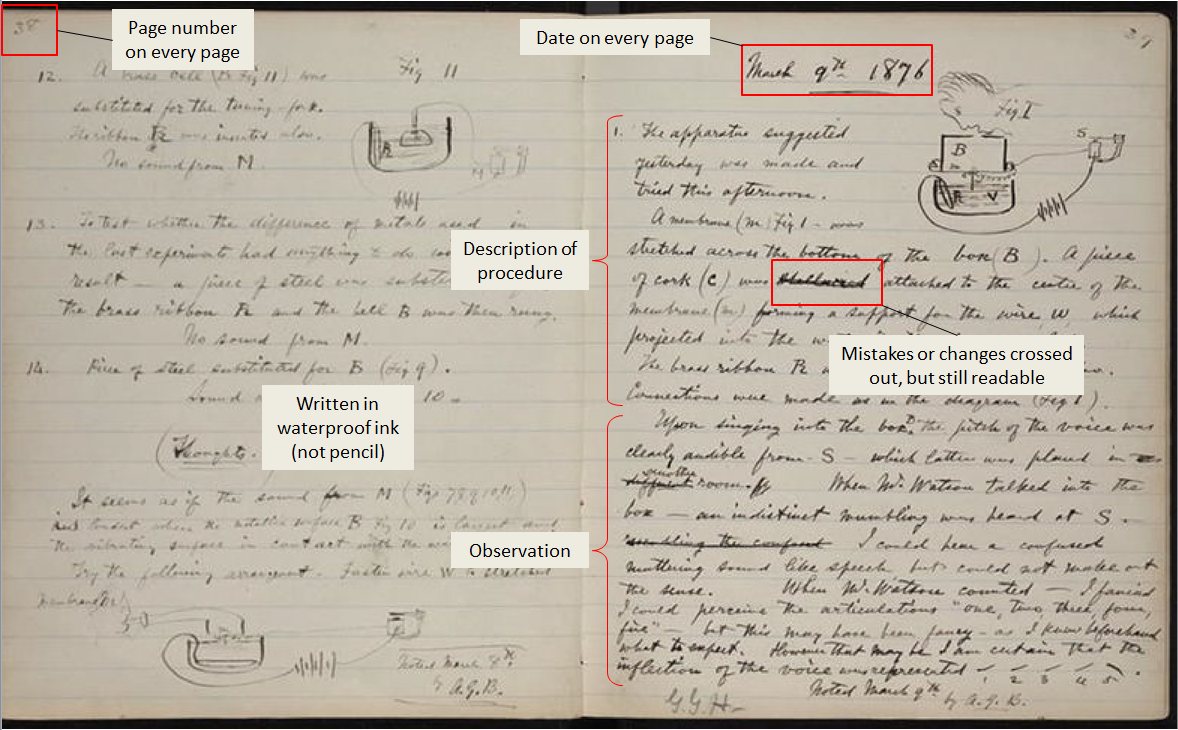 38
Page number
on every page
12. A brass bell (B Fig 11) was
substituted for the tuning-fork.
The ribbon R was inserted also.
No sound from M
Fig 11
R
M
13. To test whether the difference of metals used in
the last experiments had anything to do
result — a piece of steel was
the brass ribbon R and the bell B was then rung.
No sound from M.
14. Piece of steel substituted for B (Fig 9).
Sound
10 —
Written in
waterproof ink
(not pencil)
(Thoughts.
It seems as if the sound from M (Figs 7 8 9 10 11)
when the metallic surface B Fig 10 is lowest and
the vibrating surface in contact with the
Try the following arrangement. Fasten wire W to stretched
membrane
Noted March 8th
by A.G.B.
Date on every page
39
March 9th 1876
Fig 1
B
S
m
R
V
Description of
procedure
1. The apparatus suggested
yesterday was made and
tried this afternoon.
A membrane (m) Fig 1 — was
stretched across the bottom of the box (B). A piece
of cork (C) was attached to the centre of the
membrane (m) forming a support for the wire, W, which
projected into the
The brass ribbon R
Connections were made as in the diagram (Fig 1).
Mistakes or changes crossed
out, but still readable
Observation
Upon singing into the box, the pitch of the voice was
clearly audible from S — which latter was placed in
another
different room.
When Mr. Watson talked into the
box — an indistinct mumbling was heard at S.
I could hear a confused
muttering sound like speech but could not make out
the sense. When Mr. Watson counted — I fancied
I could perceive the articulations "one, two, three, four,
five" — but this may have been fancy — as I knew beforehand
what to expect. However that may be I am certain that the
inflection of the voice was represented
1 2 3 4 5
Noted March 9th
by A.G.B.
G.G.H.